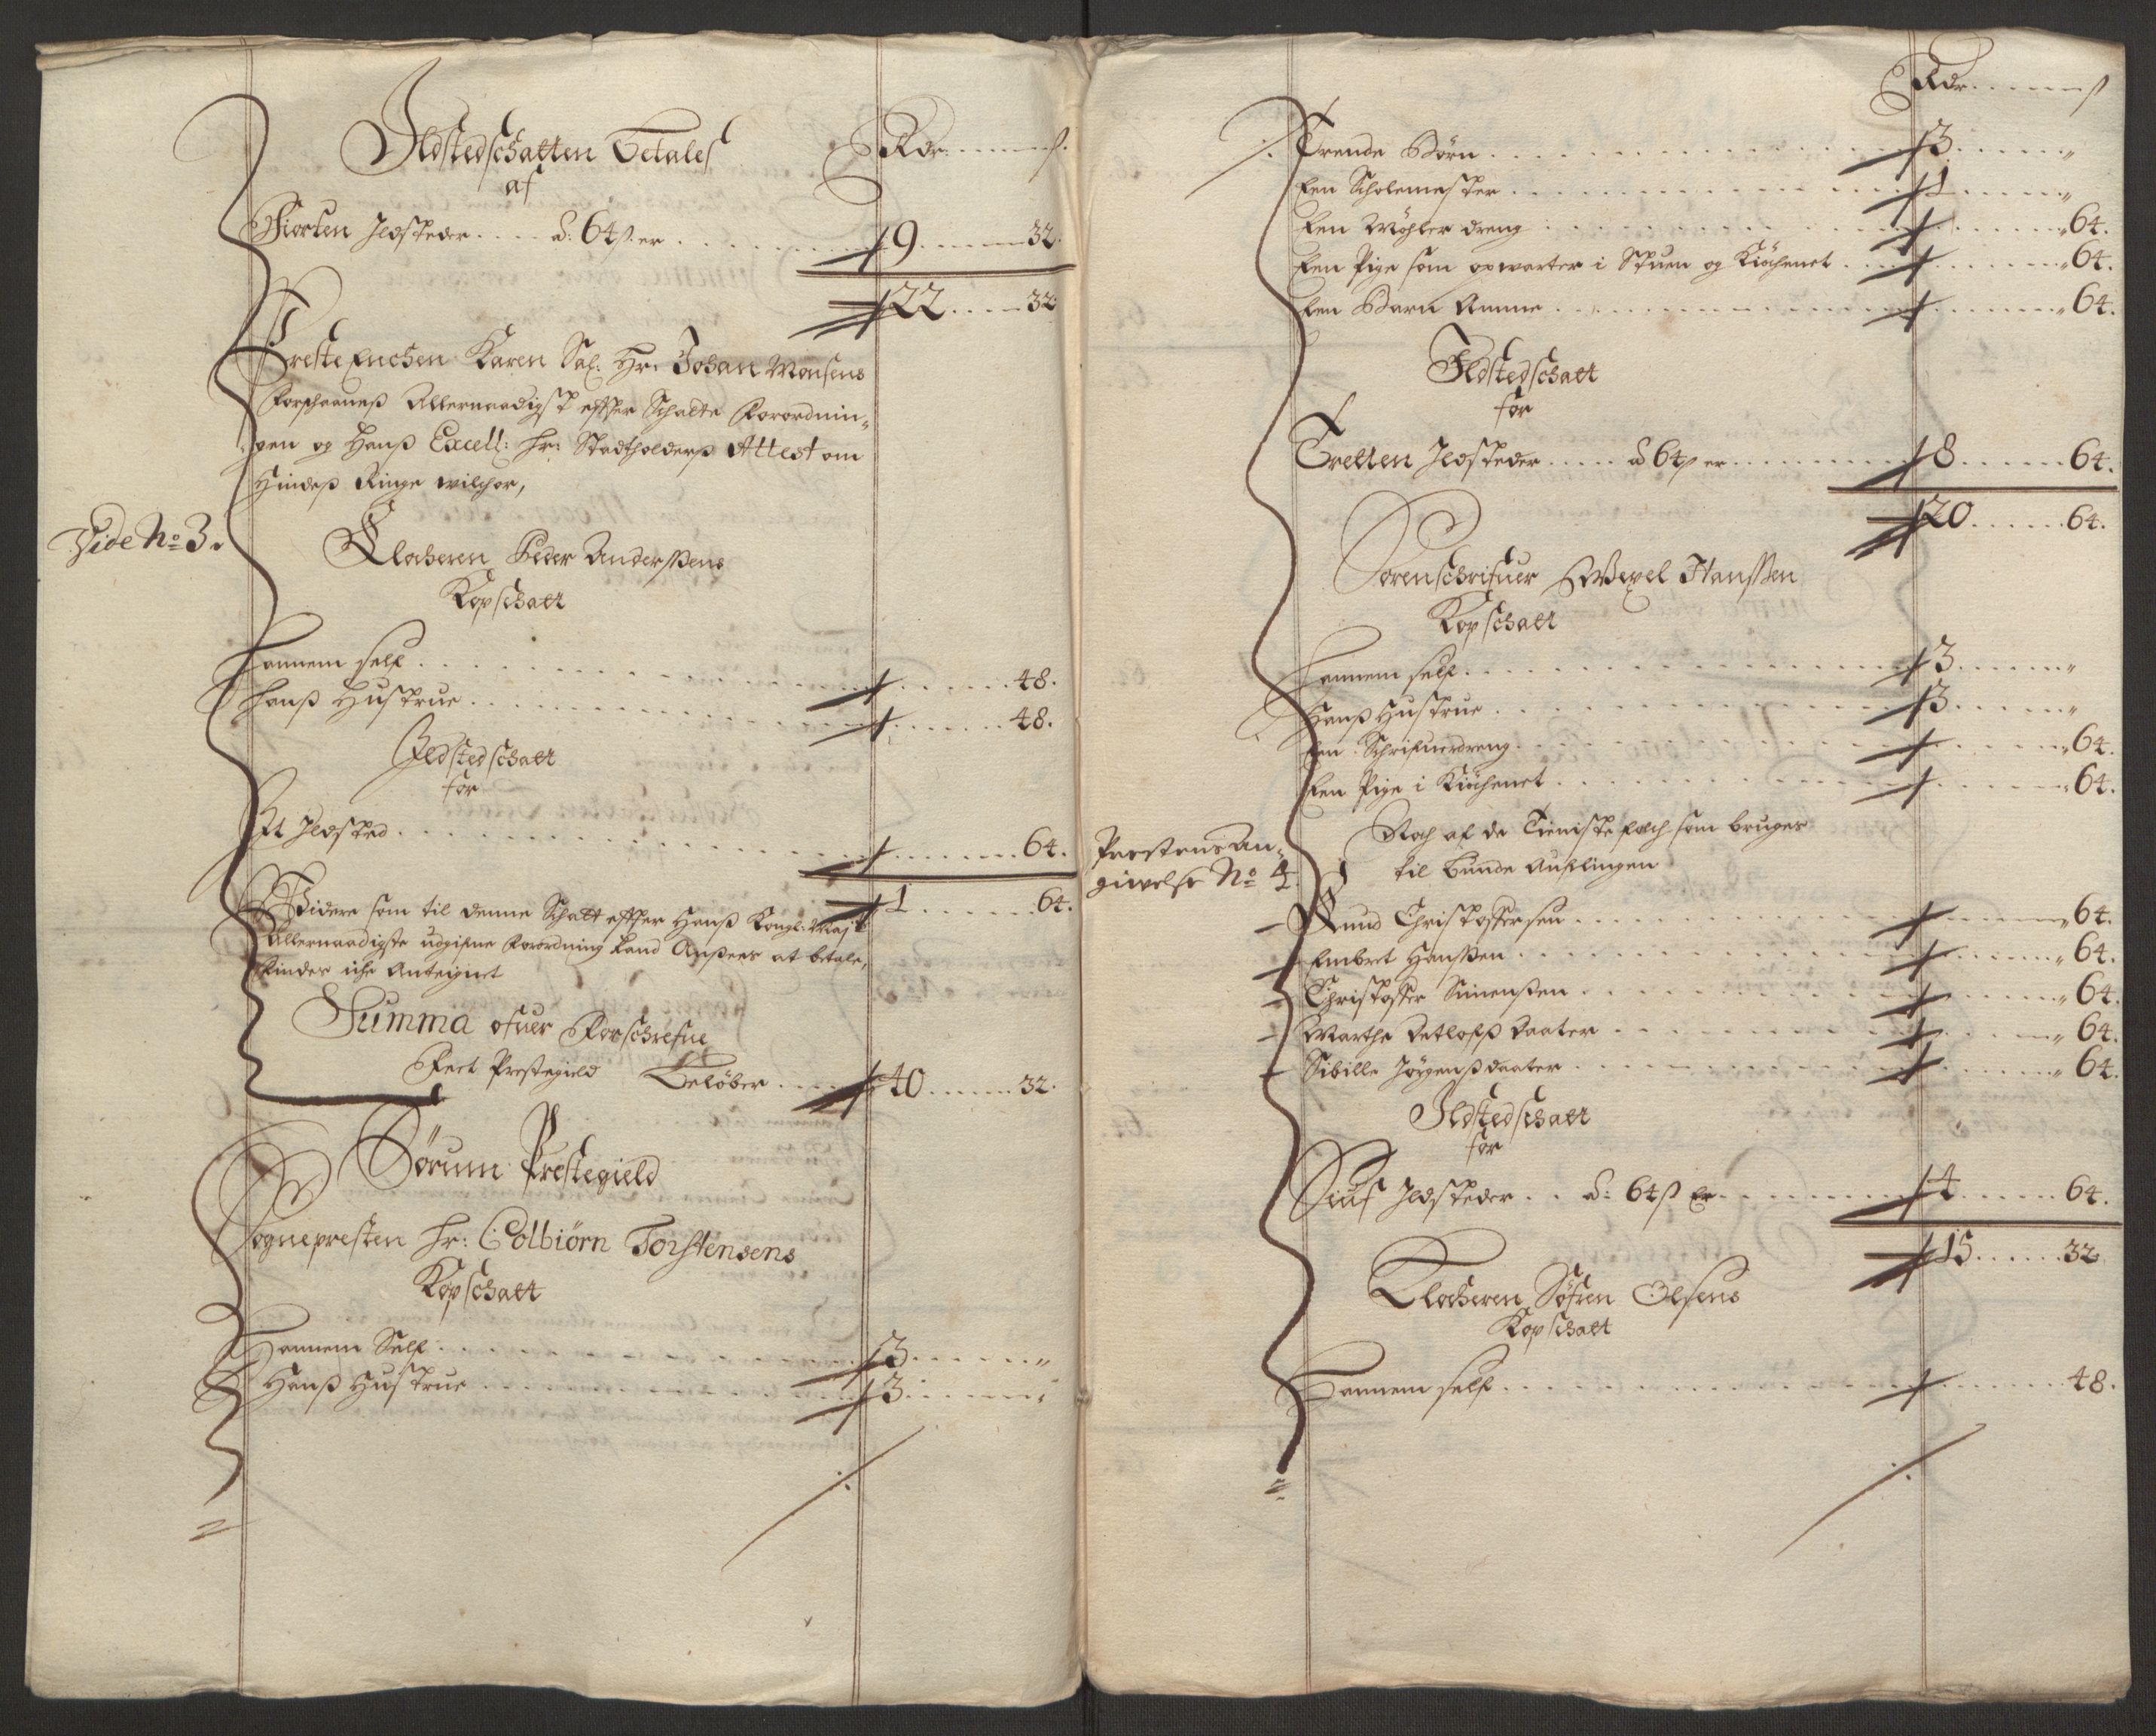 Ildstedschatten Betales
af
Rdr ß
Fiorten Ildsteder .... à: 64 ß. er ........ 9 ..... 32.
22 .... 32
Preste Enchen Karen Sal: Hr: Johan Monsens
Forschaanes Allernaadigst effter Schatte Forordnin„
gen og Hanß Excell: Hr: Stadtholderß Attest om
Hindeß Ringe wilchor,
Vide No 3.
Klocheren Peder Anderßens
Kopschatt
Hannem self ........ 48.
Hanß Hustrue ........ 48.
Ildstedschatt
for
Et Ildsted ........ 64.
1 ...... 64.
Widere som til denne Schatt effter Hanß Kongl: Majt
Allernaadigste udgifne Forordning kand Ansees at betale,
findes iche Antegnet
Summa ofuer Forschrefne
Feet Prestegield Beløber .... 40 ..... 32.
Sørum Prestegield
Sognepresten Hr: Colbiørn Torstensens
Kopschatt
Hannem Self ........ 3 ..... „
Hanß Hustrue ........ 3 ..... „
./.
Rdr ß
./. Trende Børn ........ 3 ..... „
Een Scholemester ........ 1 ..... „
Een Møgter dreng ........ „ 64.
Een Pige som opwarter i Stuen og Kiøchenet .... „ 64.
Een Barn Amme ........ „ 64.
Ildstedschatt
for
Tretten Ildsteder ..... à 64 ß er ........ 8 ..... 64.
20 ..... 64.
Sorenschrifuer Wexel Hanßen
Kopschatt
Hannem self ........ 3 ..... „
Hanß Hustrue ........ 3 ..... „
Een Schrifuerdreng ........ „ 64.
Een Pige i Kiøchenet ........ „ 64.
Prestens An„
givelse No 4.
Noch af de Tieniste folch som bruges
til Bunde Auflingen
Knud Christoffersen ........ „ 64.
Embret Hanßen ........ „ 64.
Christoffer Simenßen ........ „ 64.
Marthe Detlofß daater ........ „ 64.
Sibille Jørgenßdaater ........ „ 64.
Ildstedschatt
for
Siuf Ildsteder .. à: 64 ß Er ........ 4 ..... 64.
15 ..... 32
Klocheren Søfren Olsens
Kopschatt
Hannem self ........ 48.
./.